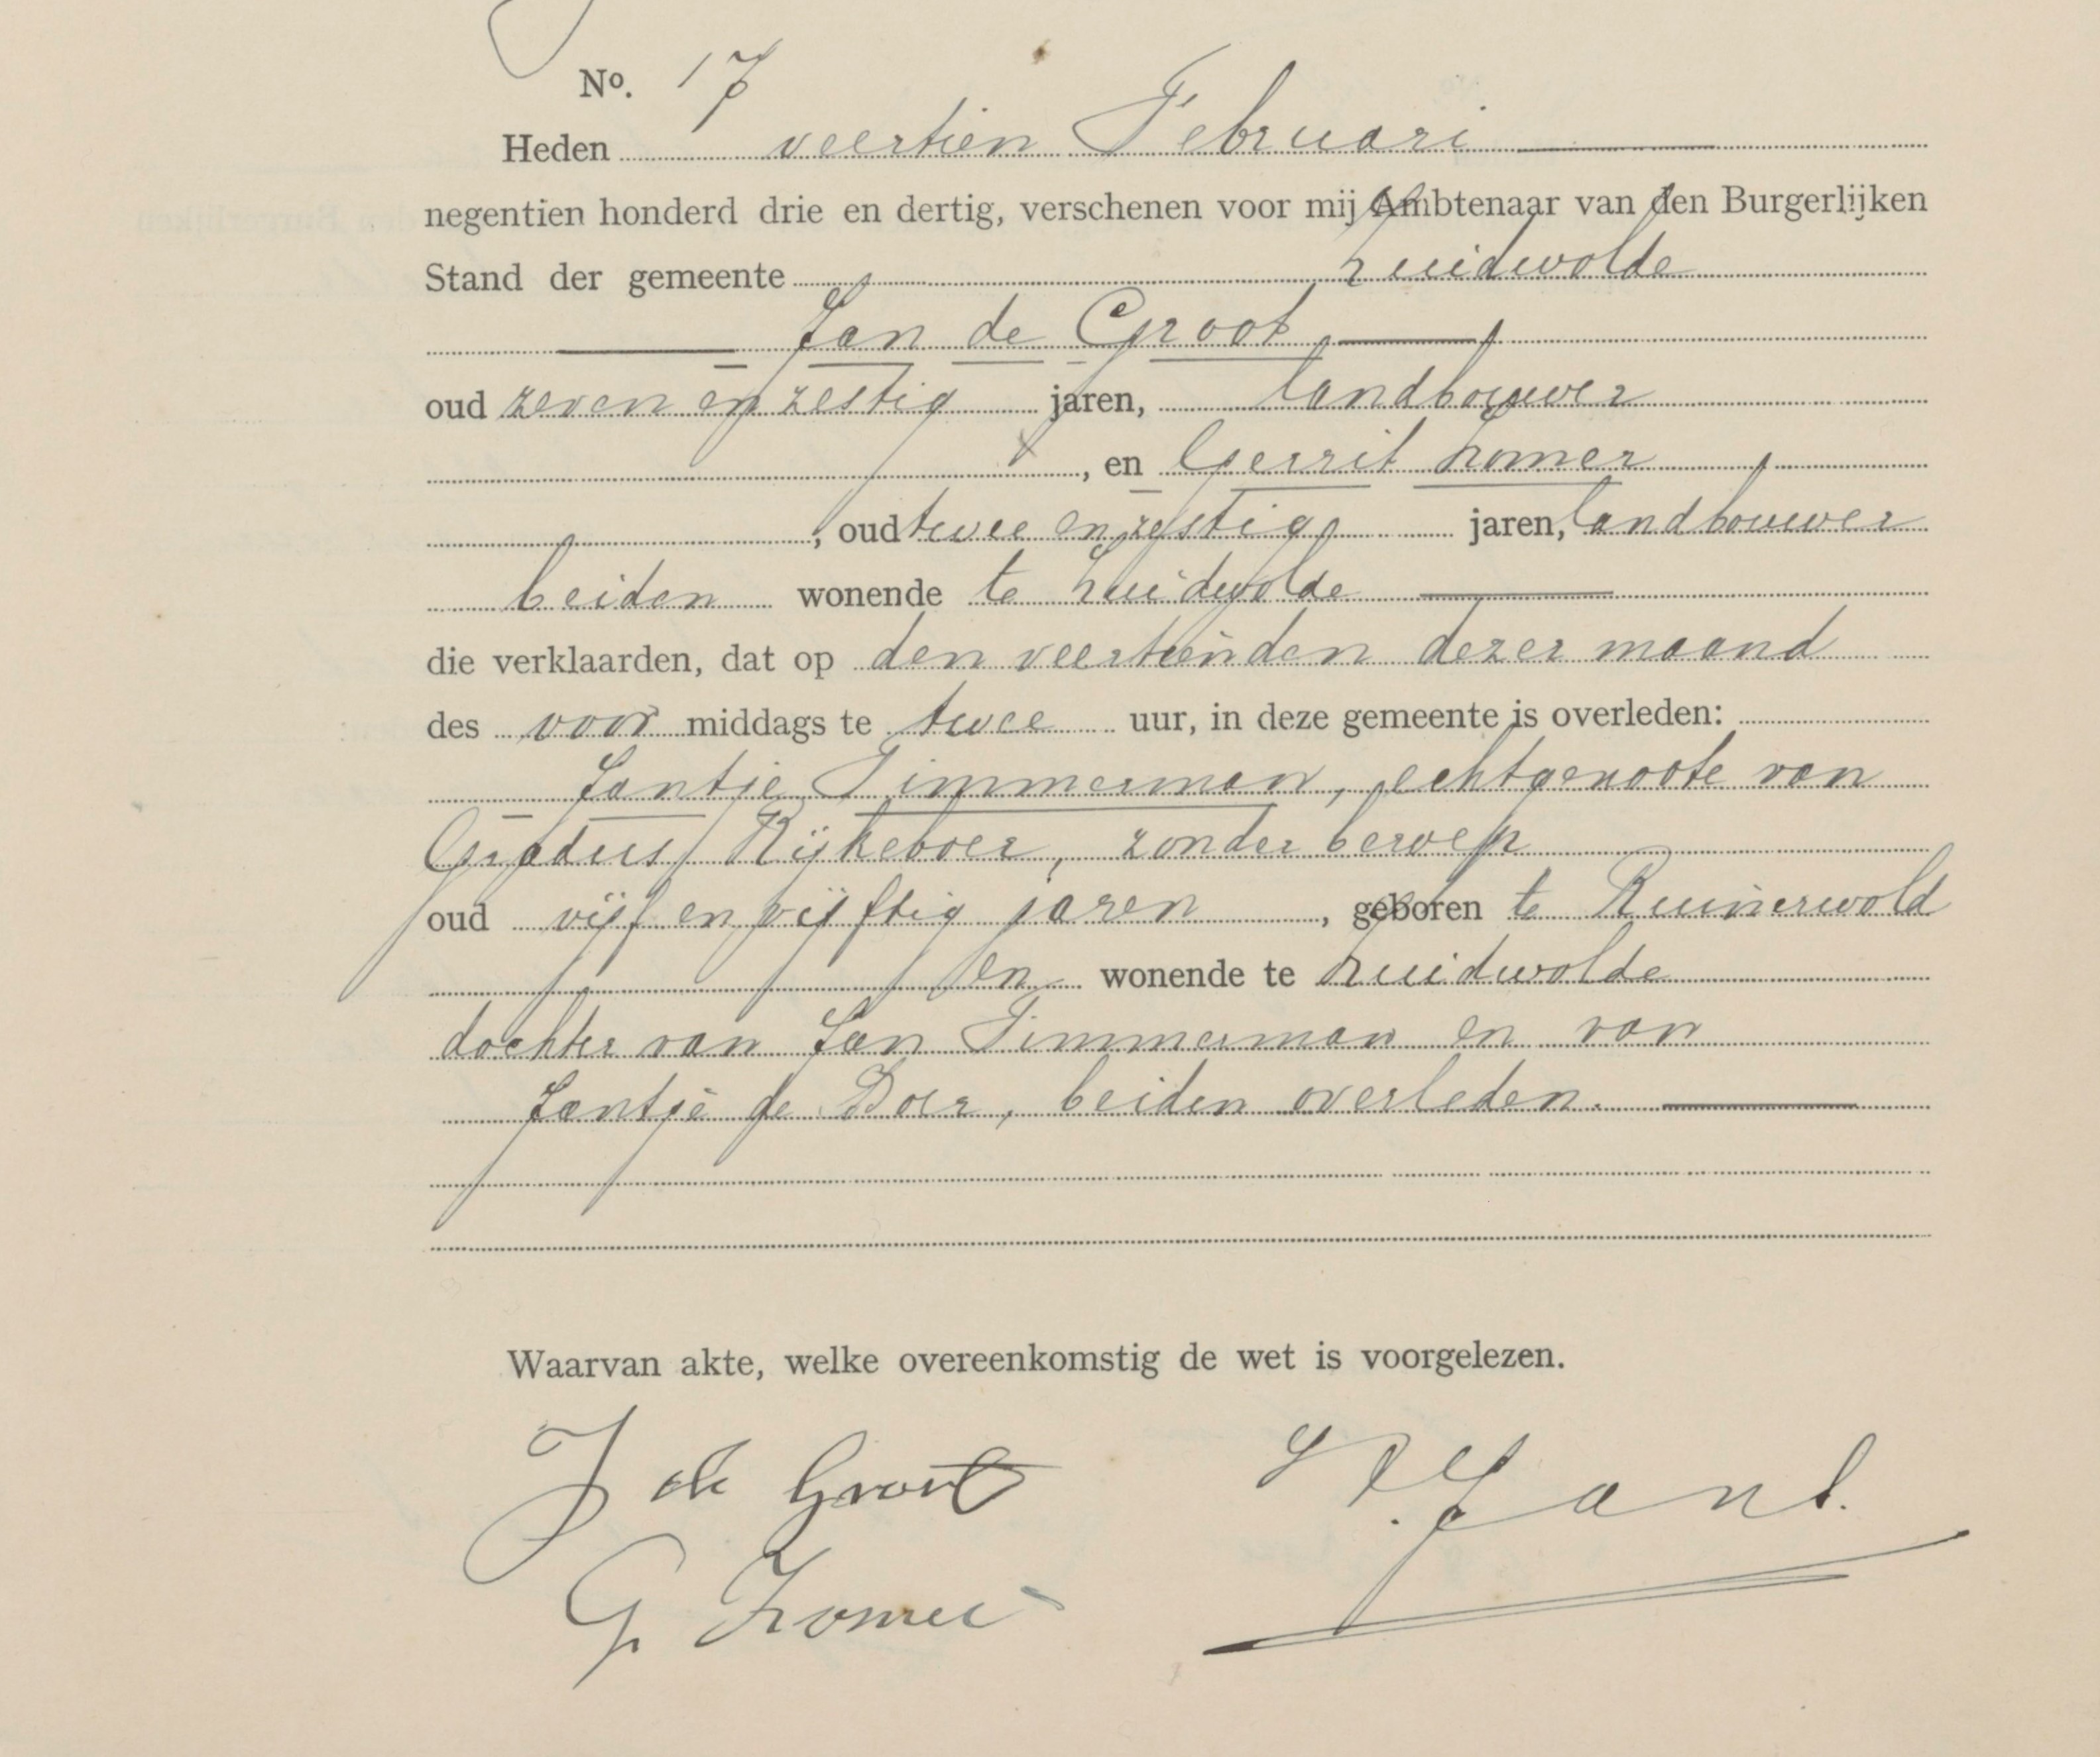 No. 17
Heden veertien Februari
negentien honderd drie en dertig, verschenen voor mij Ambtenaar van den Burgerlijken
Stand der gemeente Zuidwolde
Jan de Groot
oud zeven en zestig jaren, landbouwer
, en Gerrit Zomer
, oud twee en zestig jaren, landbouwer
beiden wonende te Zuidwolde
die verklaarden, dat op den veertienden dezer maand
des voor middags te twee uur, in deze gemeente is overleden:
Jantje Timmerman, echtgenoote van
Gradus Rijkeboer, zonder beroep
oud vijf en vijftig jaren, geboren te Ruinerwold
en wonende te Zuidwolde
dochter van Jan Timmerman en van
Jantje de Boer, beiden overleden.
Waarvan akte, welke overeenkomstig de wet is voorgelezen.
J de Groot
G Zomer